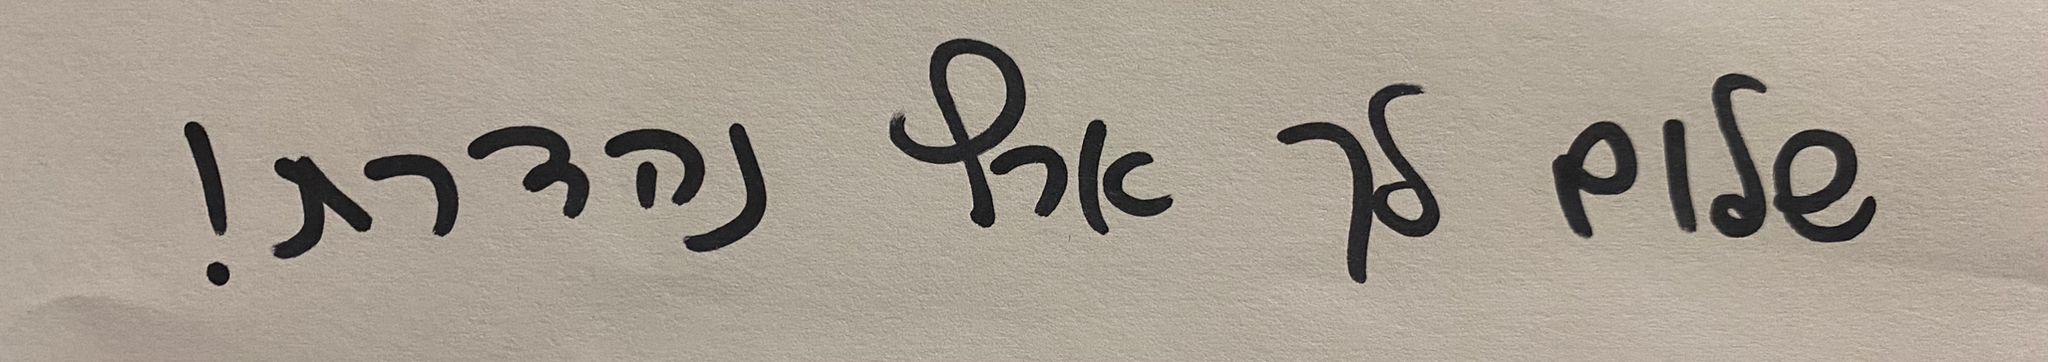 שלום לך ארץ נהדרת!